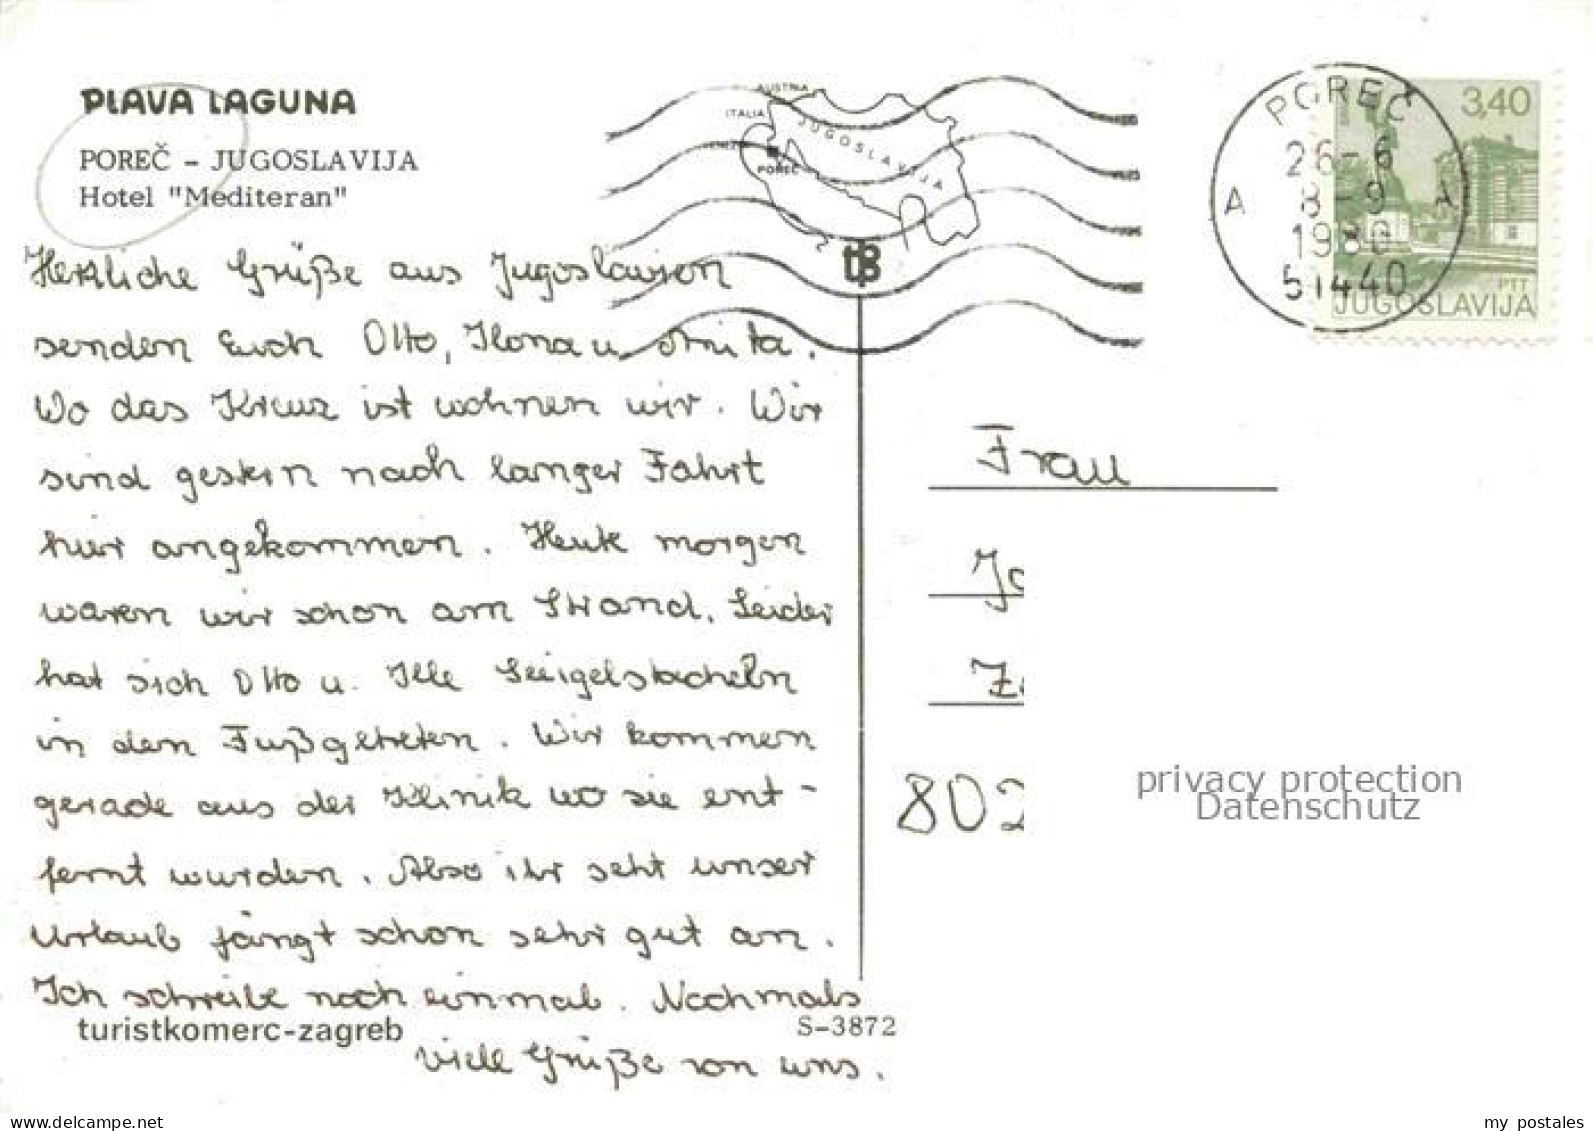 PLAVA LAGUNA
POREČ – JUGOSLAVIJA
Hotel "Mediteran"
AUSTRIA
ITALIA
JUGOSLAVIJA
POREČ
POREČ
26-6
8-9
1980
51440
A A
3,40
PTT
JUGOSLAVIJA
Herzliche Grüße aus Jugoslawien
senden Euch Otto, Ilona u. Anita.
Wo das Kreuz ist wohnen wir. Wir
sind gestern nach langer Fahrt
hier angekommen. Heute morgen
waren wir schon am Strand. Leider
hat sich Otto u. Ille Seeigelstacheln
in den Fuß getreten. Wir kommen
gerade aus der Klinik wo sie ent-
fernt wurden. Also ihr seht unser
Urlaub fängt schon sehr gut an.
Ich schreibe noch einmal. Nochmals
viele Grüße von uns.
turistkomerc-zagreb
S-3872
Frau
802
privacy protection
Datenschutz
delcampe.net
my_postales